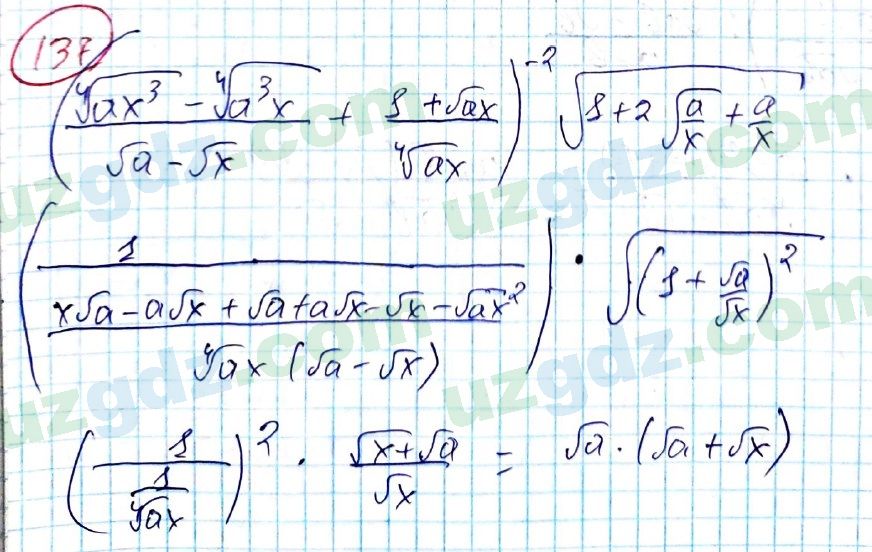 137
(∜(ax³) − ∜(a³x) / (√a − √x) + (1 + √ax) / ∜(ax))⁻² √(1 + 2√(a/x) + a/x)
(1 / ((x√a − a√x + √a + a√x − √x − √(ax²)) / (∜(ax) (√a − √x)))) · √((1 + √a/√x)²)
(1 / (1/∜(ax)))² · (√x + √a)/√x = √a · (√a + √x)
uzgdz.com
uzgdz.com
uzgdz.com
uzgdz.com